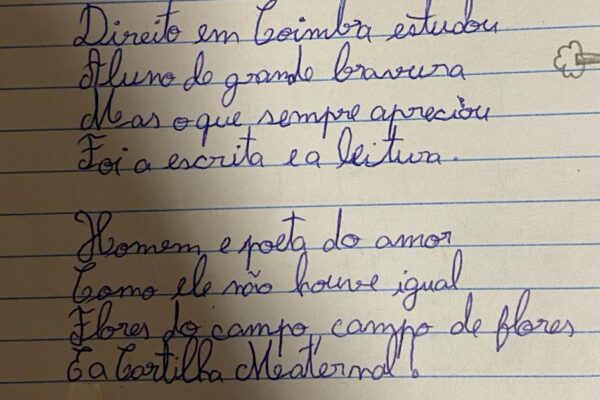 Direito em Coimbra estudou
Aluno de grande bravura
Mas o que sempre apreciou
Foi a escrita e a leitura.
Homem e poeta do amor
Como ele não houve igual
Flores do campo, campo de flores
E a Cartilha Maternal!